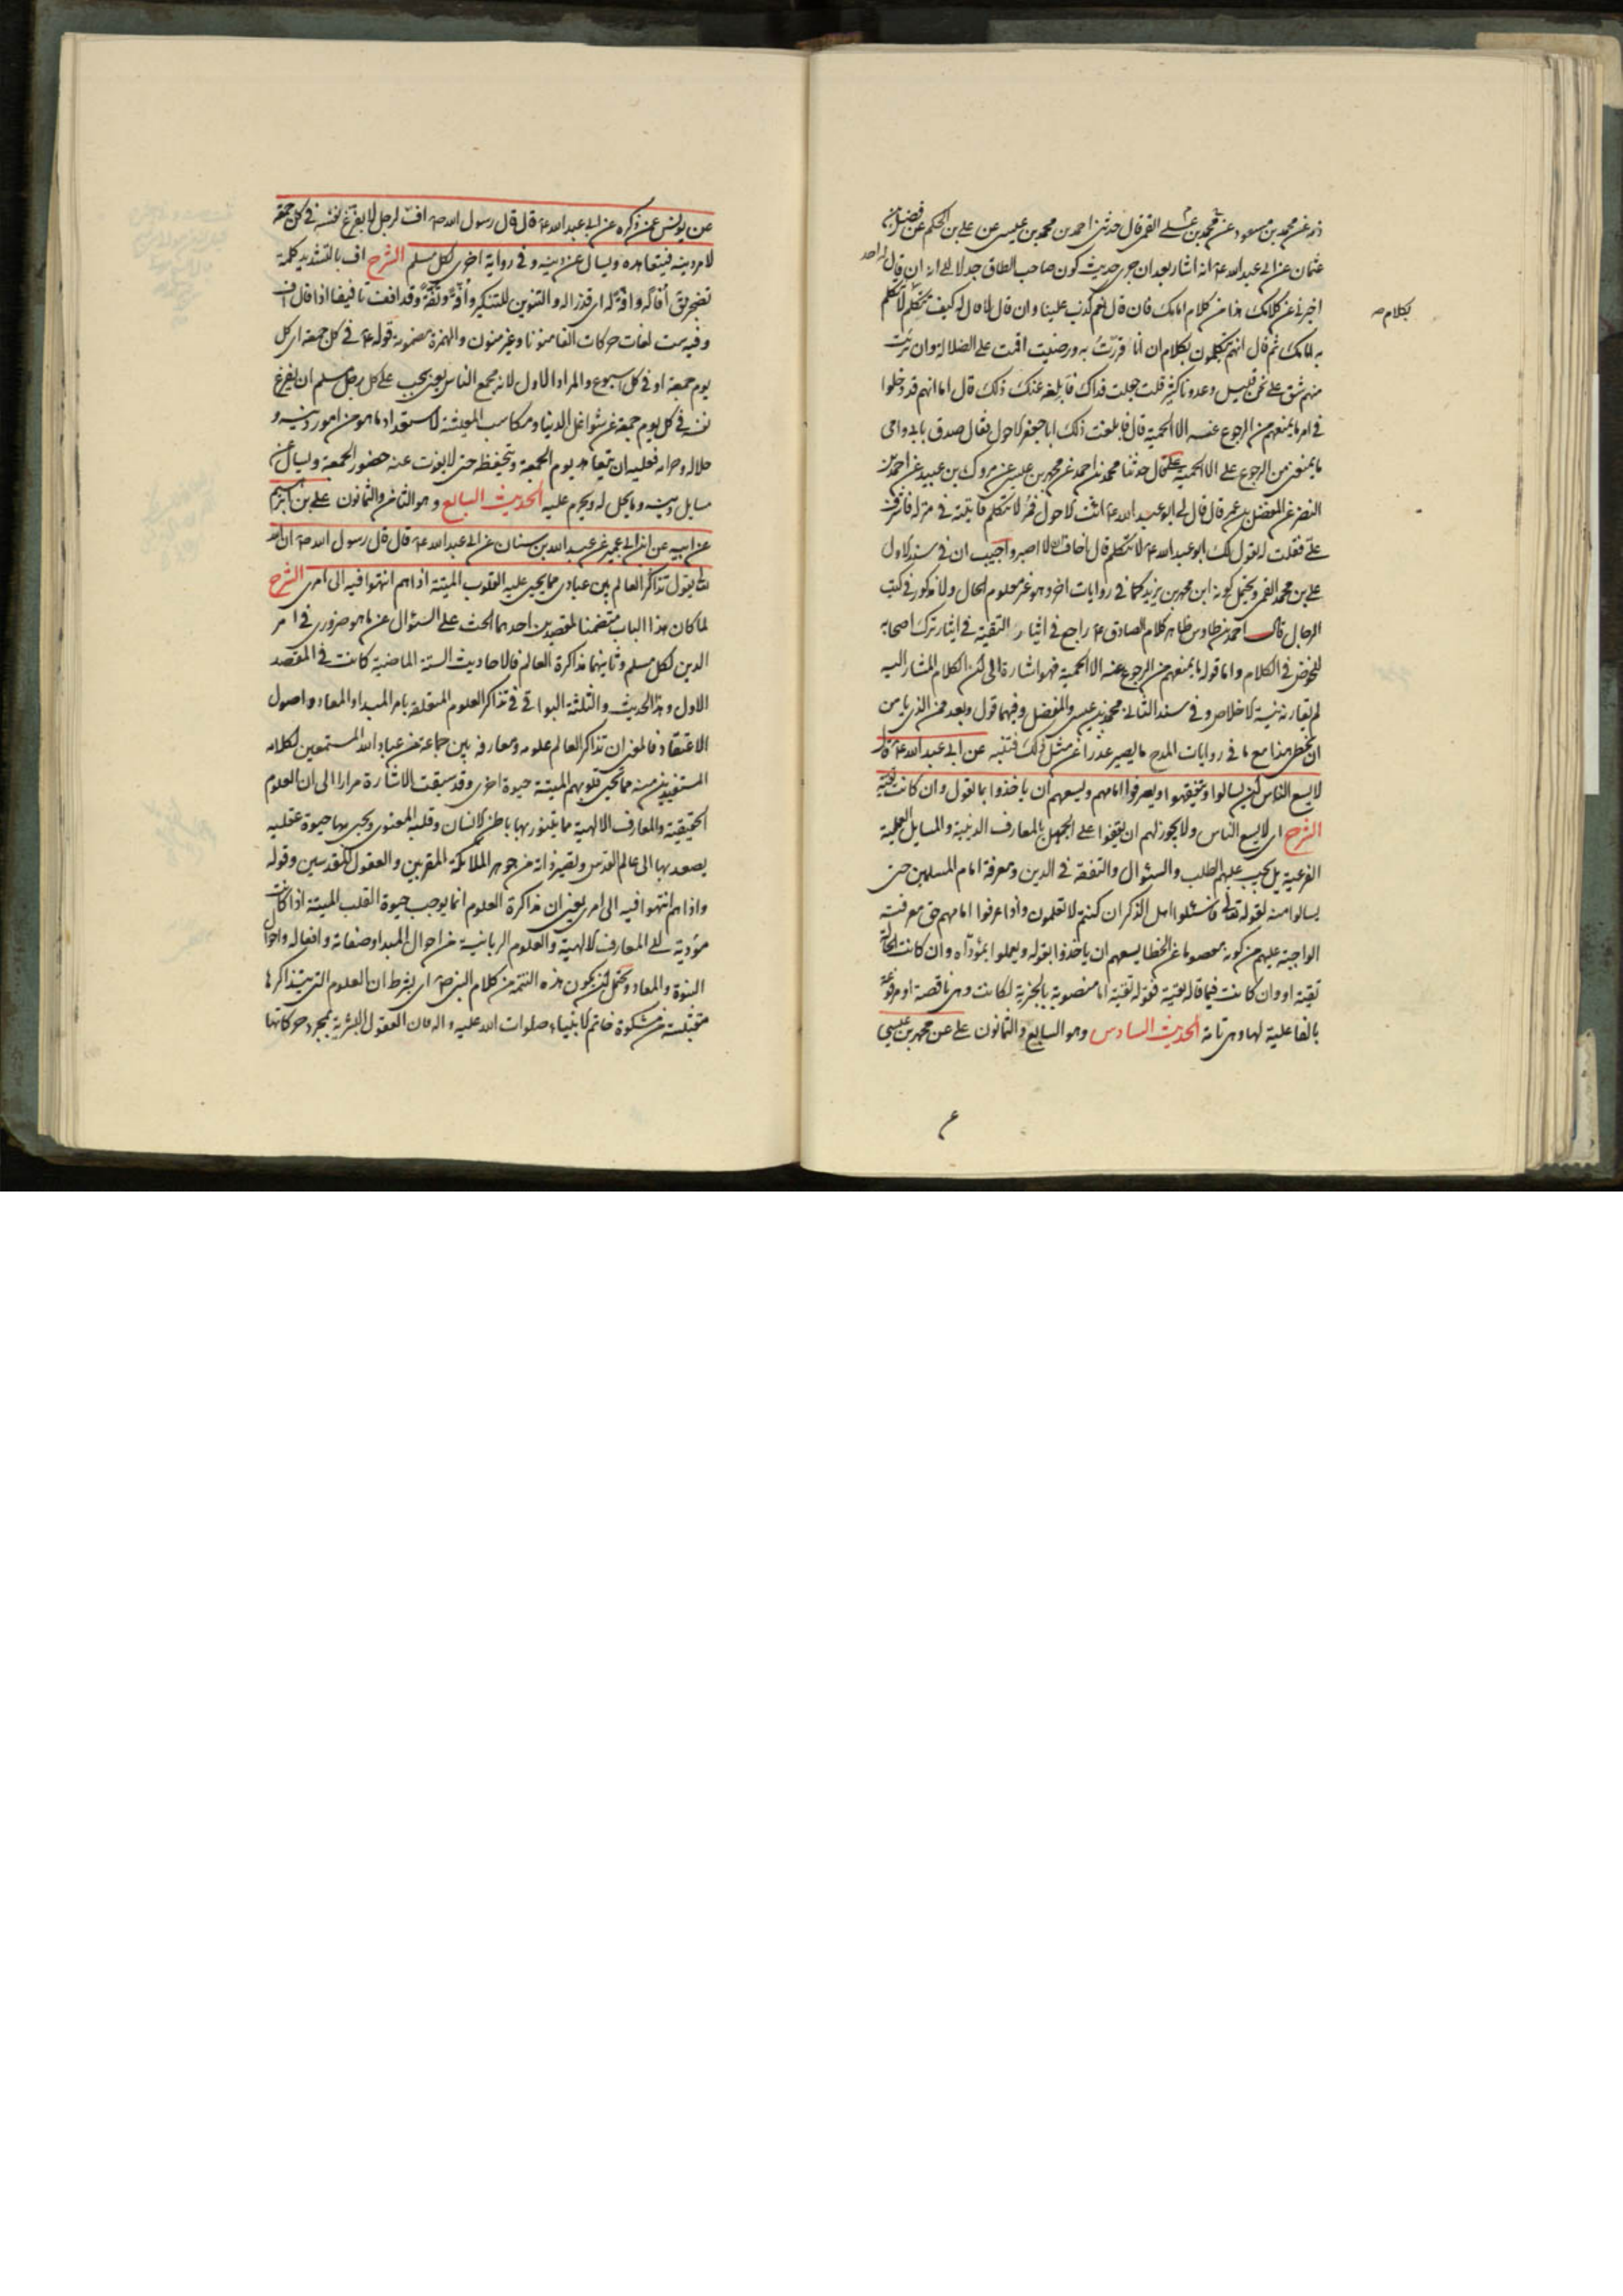 ذره عن محمد بن مسعود عن محمد بن عيسى القمي قال حدثني احمد بن محمد بن عيسى عن علي بن الحكم عن فضيل بن
عثمان عن ابي عبد الله ع انه اشار بعد ان جرى حديث كون صاحب الطاق جدلا الى انه ان قال واحد
اخبرني عن كلامك هذا من كلام امامك فان قال نعم كذب علينا وان قال لا قال له كيف تتكلم بكلام لا يتكلم
بكلام صح
به امامك ثم قال انهم يتكلمون بكلام ان انا اقررت به ورضيت اقمت على الضلالة وان برئت
منهم شق علي نحن قليل وعدونا كثير قلت جعلت فداك فابلغه عنك ذلك قال اما انهم قد دخلوا
في امر ما يمنعهم من الرجوع عنه الا الحمية قال فابلغت ذلك ابا جعفر الاحول فقال صدق بابي وامي
ما يمنعني من الرجوع عنه الا الحمية علي قال حدثنا محمد بن احمد عن محمد بن عيسى عن مروك بن عبيد عن احمد بن
النضر عن المفضل بن عمر قال قال لي ابو عبد الله ع ائت الاحول فمره لا يتكلم فاتيته في منزله فاشرف
علي فقلت له يقول لك ابو عبد الله ع لا تتكلم قال اخاف الا اصبر واجيب ان في سند الاول
علي بن محمد القمي ويحتمل كونه ابن محمد بن يزيد كما في روايات اخر وهو غير معلوم الحال ولا مذكور في كتب
الرجال قال احمد بن طاوس ظاهر كلام الصادق ع راجع في ايثار التقية في ايثار ترك اصحابه
للخوض في الكلام واما قوله ما يمنعهم من الرجوع عنه الا الحمية فهو اشارة الى ان الكلام المشار اليه
لم تقارنه نية الاخلاص وفي سند الثاني محمد بن عيسى والمفضل وفيهما قول وبعد فمن الذي يامن
ان يخطي هذا مع ما في روايات المدح ما يصير عذرا عن مثل ذلك فتنبه عن ابي عبد الله ع قال
لا يسع الناس حتى يسالوا ويتفقهوا ويعرفوا امامهم ويسعهم ان ياخذوا بما يقول وان كانت تقية
الشرح اي لا يسع الناس ولا يجوز لهم ان يقفوا على الجهل بالمعارف الدينية والمسايل العملية
الفرعية بل يجب عليهم الطلب والسئوال والتفقه في الدين ومعرفة امام المسلمين حتى
يسالوا منه لقوله تعالى فاسئلوا اهل الذكر ان كنتم لا تعلمون واذا عرفوا امامهم حق معرفته
الواجبة عليهم من كونه معصوما عن الخطا يسعهم ان ياخذوا بقوله ويعملوا بمؤداه وان كانت الحالة
تقية او وان كانت فيما قاله تقية فقوله تقية اما منصوبة بالخبرية لكانت وهي ناقصة او مرفوعة
بالفاعلية لها وهي تامة الحديث السادس وهو السابع والثمانون علي عن محمد بن عيسى
عن يونس عمن ذكره عن ابي عبد الله ع قال قال رسول الله ص اف لرجل لا يفرغ نفسه في كل جمعة
لامر دينه فيتعاهده ويسال عن دينه وفي رواية اخرى لكل مسلم الشرح اف بالتشديد كلمة
تضجر يق أفا له وافة له اي قذرا له والتنوين للتنكير وافة وتفة وقد افف تافيفا اذا قال اف
وفيه ست لغات حركات الفا منونا وغير منون والهمزة مضمومة قوله ع في كل جمعة اي كل
يوم جمعة او في كل اسبوع والمراد الاول لانه مجمع الناس يعني يجب على كل رجل مسلم ان يفرغ
نفسه في كل يوم جمعة عن شواغل الدنيا ومكاسب المعيشة لاستعداد ما هو من امور دينه و
حلاله وحرامه فعليه ان يتعاهد يوم الجمعة ويتحفظه حتى لا يفوت عنه حضور الجمعة ويسال عن
مسايل دينه وما يحل له ويحرم عليه الحديث السابع وهو الثامن والثمانون علي بن ابرهيم
عن ابيه عن ابن ابي عمير عن عبد الله بن سنان عن ابي عبد الله ع قال قال رسول الله ص ان الله
تعالى يقول تذاكر العالم بين عبادي مما يحيى عليه القلوب الميتة اذا هم انتهوا فيه الى امري الشرح
لما كان هذا الباب متضمنا لمقصدين احدهما الحث على السئوال عن ما هو ضروري في امر
الدين لكل مسلم وثانيهما مذاكرة العالم فالاحاديث الستة الماضية كانت في المقصد
الاول وهذا الحديث والثلثة البواقي في تذاكر العلوم المتعلقة بامر المبدا والمعاد واصول
الاعتقاد فالمعنى ان تذاكر العالم علومه ومعارفه بين جماعة من عباد الله المستمعين لكلامه
المستفيدين منه مما يحيى قلوبهم الميتة حيوة اخرى وقد سبقت الاشارة مرارا الى ان العلوم
الحقيقية والمعارف الالهية مما يتنور بها باطن الانسان وقلبه المعنوي ويحيى بها حيوة عقلية
يصعد بها الى عالم القدس ويصير ذاته من جوهر الملائكة المقربين والعقول المقدسين وقوله
واذا هم انتهوا فيه الى امري يعني ان مذاكرة العلوم انما يوجب حيوة القلب الميتة اذا كانت
مؤدية الى المعارف الالهية والعلوم الربانية من احوال المبدا وصفاته وافعاله واحوال
النبوة والمعاد ويحتمل ان يكون هذه التتمة من كلام النبي ص اي بشرط ان العلوم التي يتذاكرها
مقتبسة من مشكوة خاتم الانبياء صلوات الله عليه واله فان العقول البشرية بمجرد حركاتها